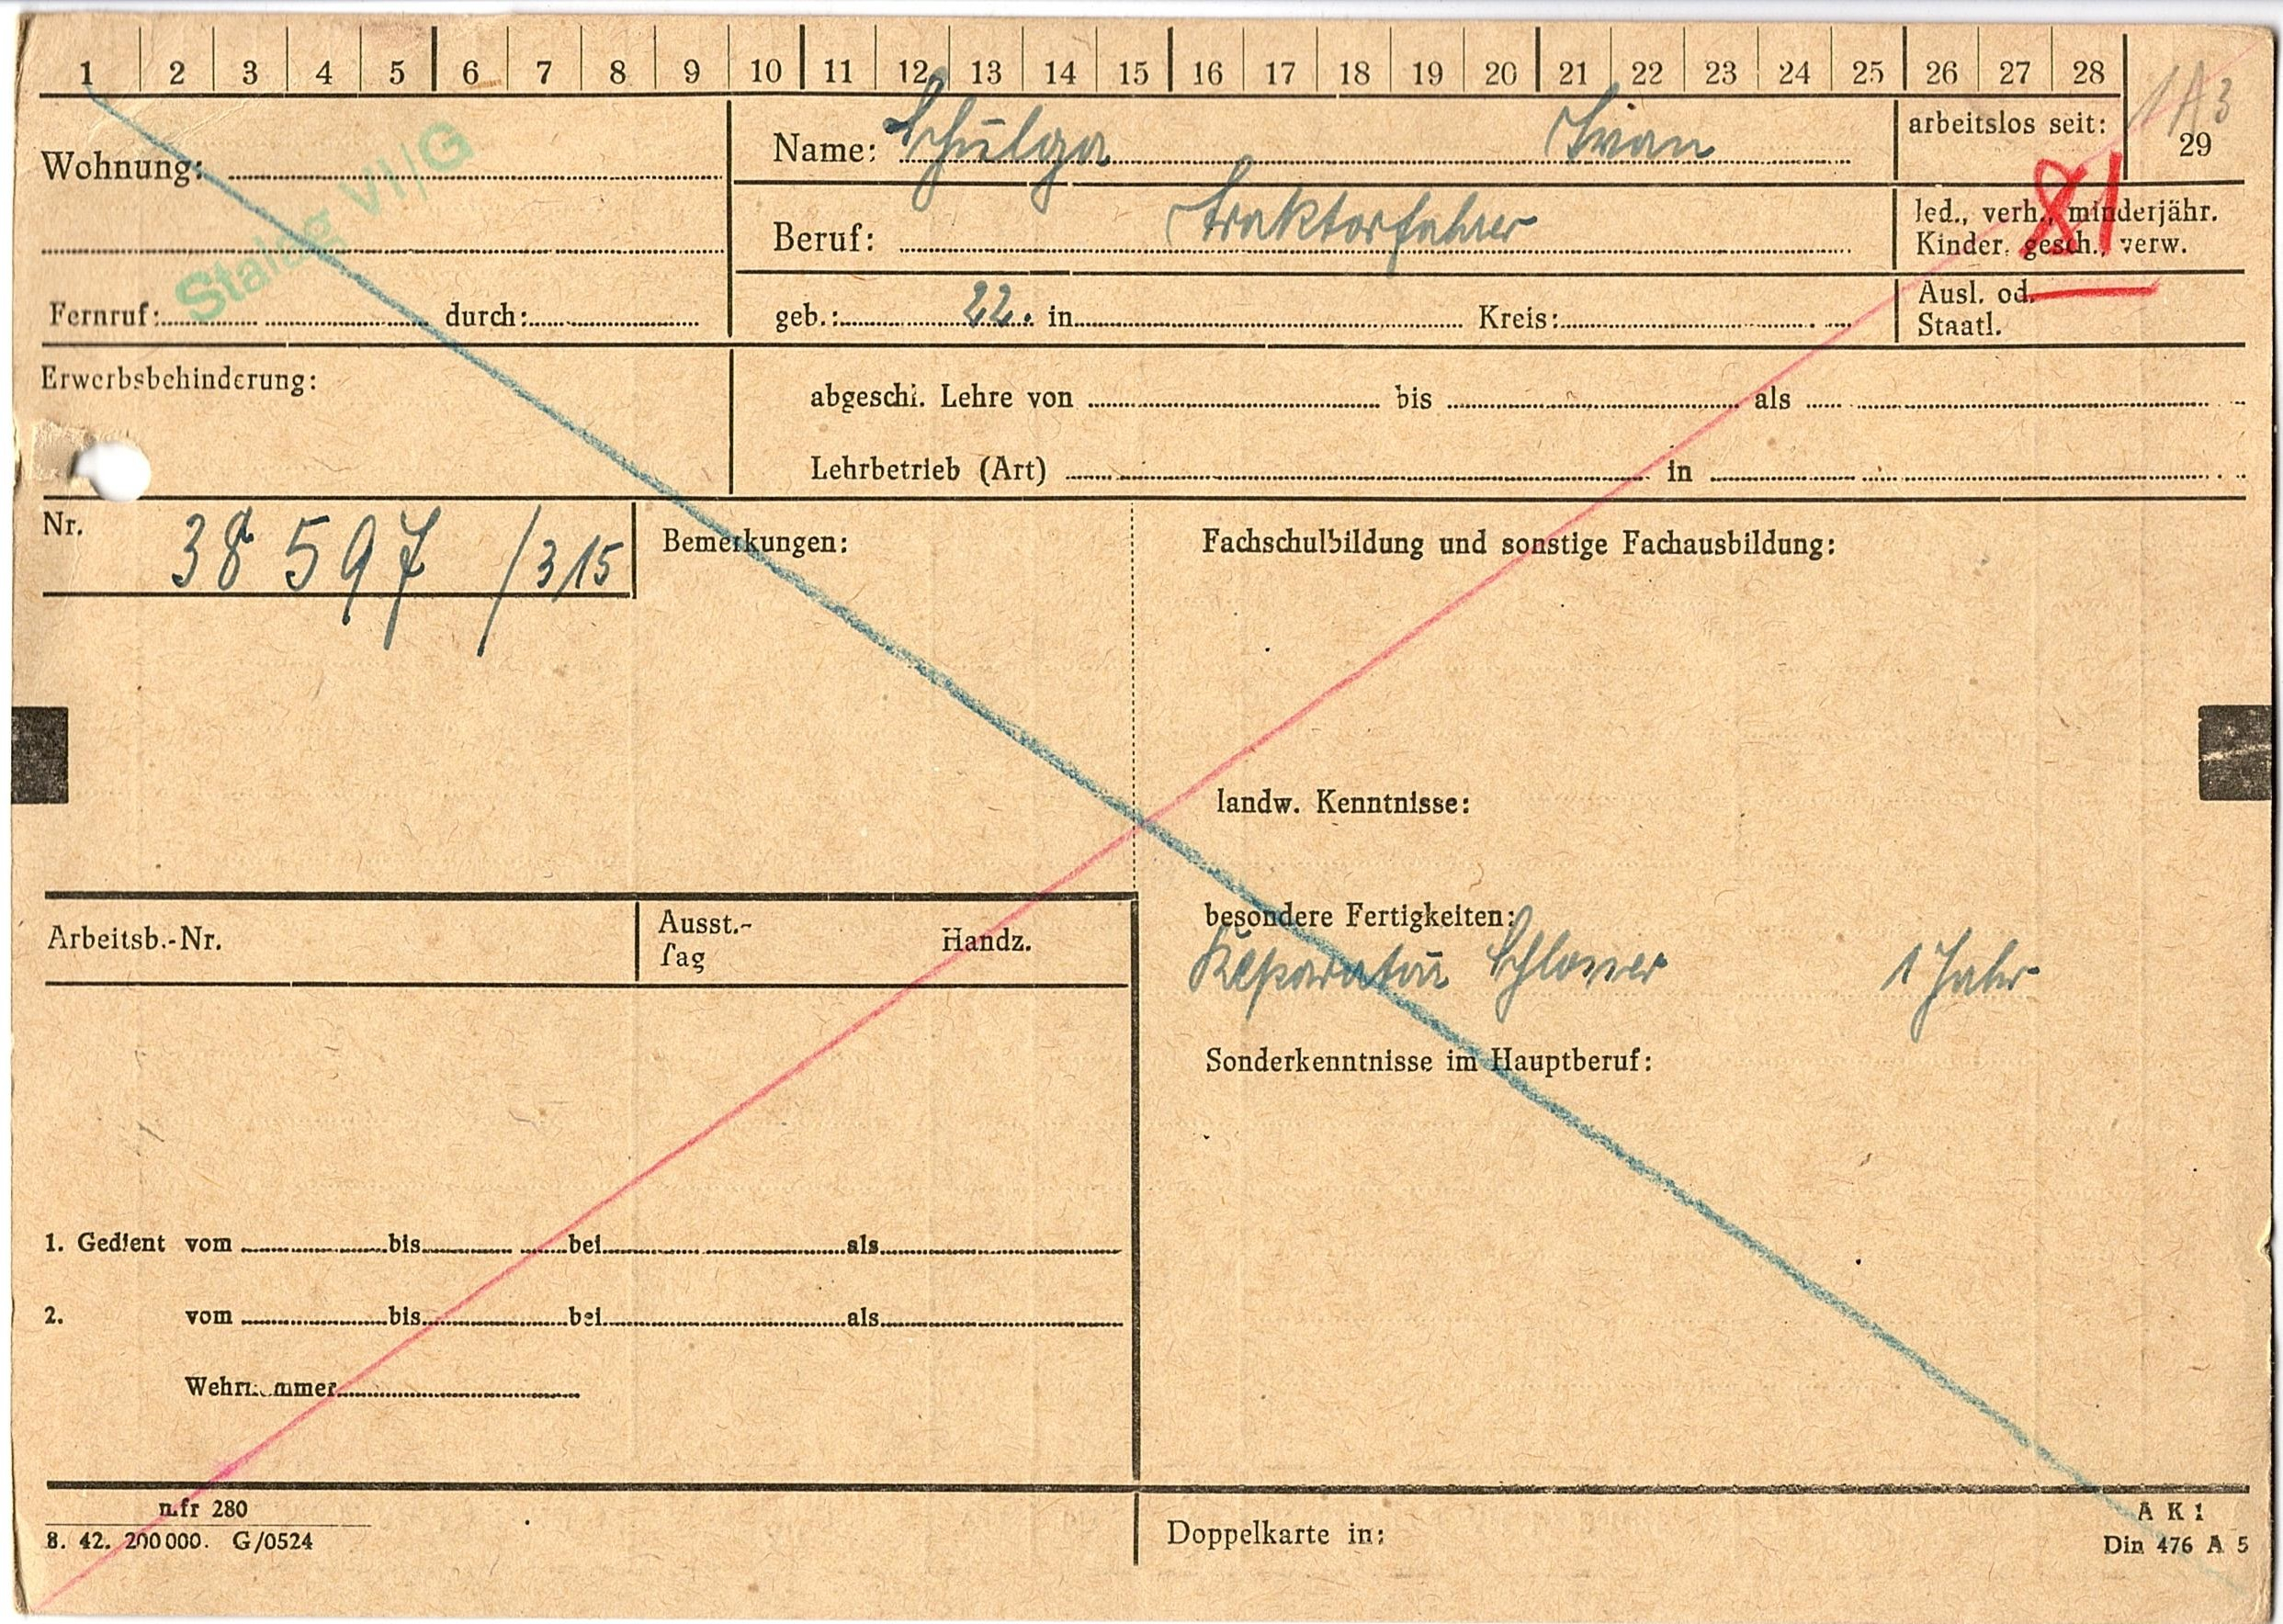 1 2 3 4 5 6 7 8 9 10 11 12 13 14 15 16 17 18 19 20 21 22 23 24 25 26 27 28
1A3
29
Wohnung:
Stalag VI/G
Name: Schulga Iwan
arbeitslos seit:
Beruf: Traktorfahrer
led., verh., minderjähr.
Kinder, gesch., verw.
81
Fernruf: durch:
geb.: 22. in Kreis:
Ausl. od.
Staatl.
Erwerbsbehinderung:
abgeschl. Lehre von bis als
Lehrbetrieb (Art) in
Nr. 38 597 /315
Bemerkungen:
Fachschulbildung und sonstige Fachausbildung:
landw. Kenntnisse:
besondere Fertigkeiten:
Reparatur Schlosser 1 Jahr
Sonderkenntnisse im Hauptberuf:
Arbeitsb.-Nr.
Ausst.-
Tag
Handz.
1. Gedient vom bis bei als
2. vom bis bei als
Wehrnummer
n.fr 280
8. 42. 200000. G/0524
Doppelkarte in:
A K 1
Din 476 A 5